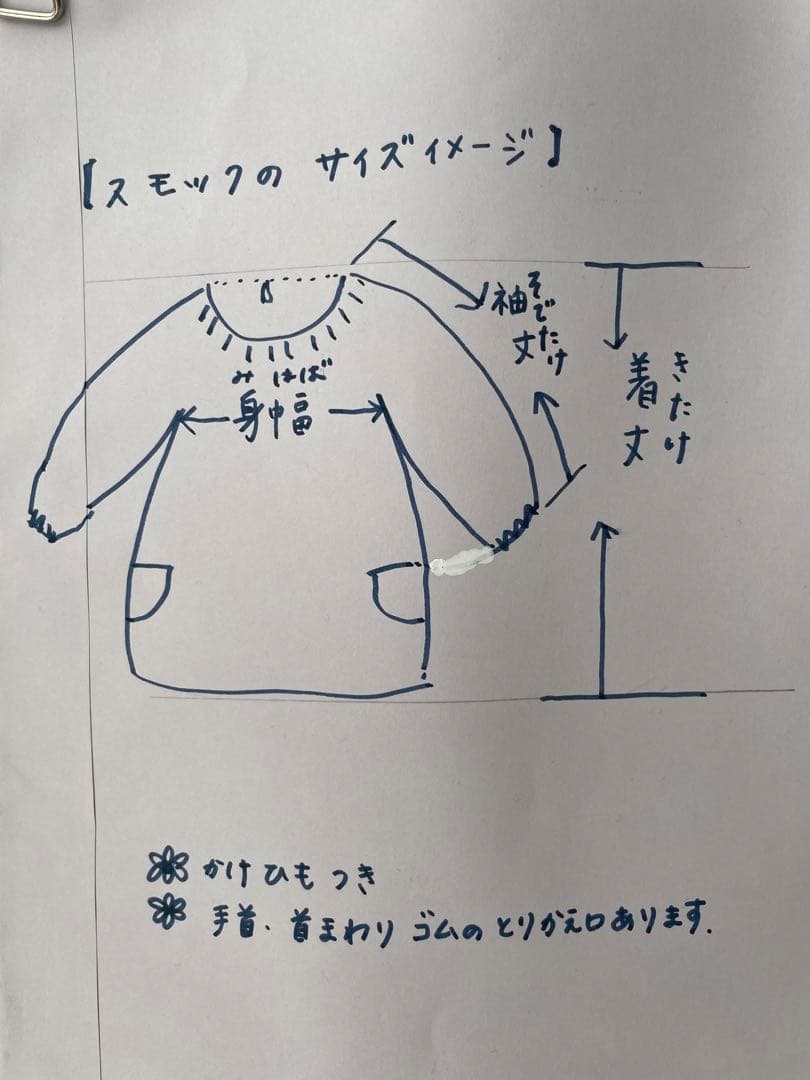 【スモックの サイズイメージ】
そでたけ
袖丈
きたけ
着丈
みはば
身幅
かけひもつき
手首、首まわり ゴムのとりかえ口あります。